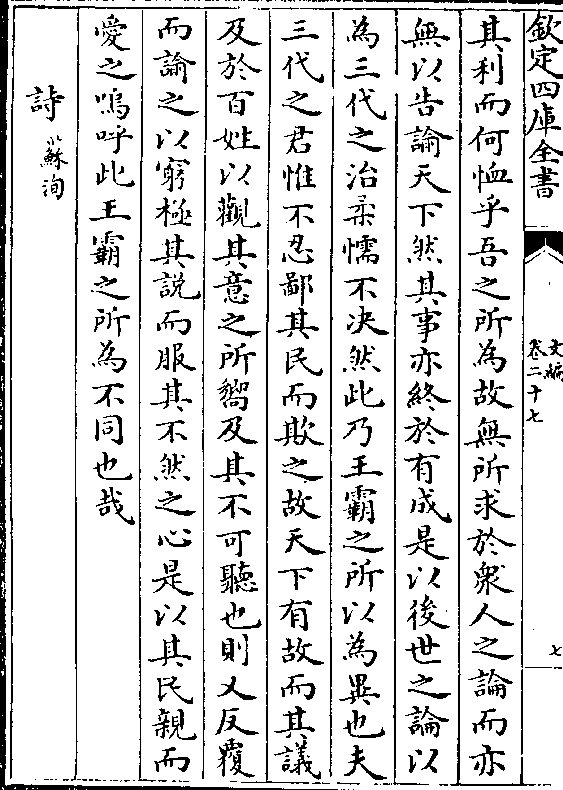 欽定四庫全書
文編
卷二十七
七
其利而何恤乎吾之所為故無所求於衆人之論而亦
無以告諭天下然其事亦終於有成是以後世之論以
為三代之治柔懦不決然此乃王霸之所以為異也夫
三代之君惟不忍鄙其民而欺之故天下有故而其議
及於百姓以觀其意之所嚮及其不可聽也則又反覆
而諭之以窮極其說而服其不然之心是以其民親而
愛之嗚呼此王霸之所為不同也哉
詩 蘇洵